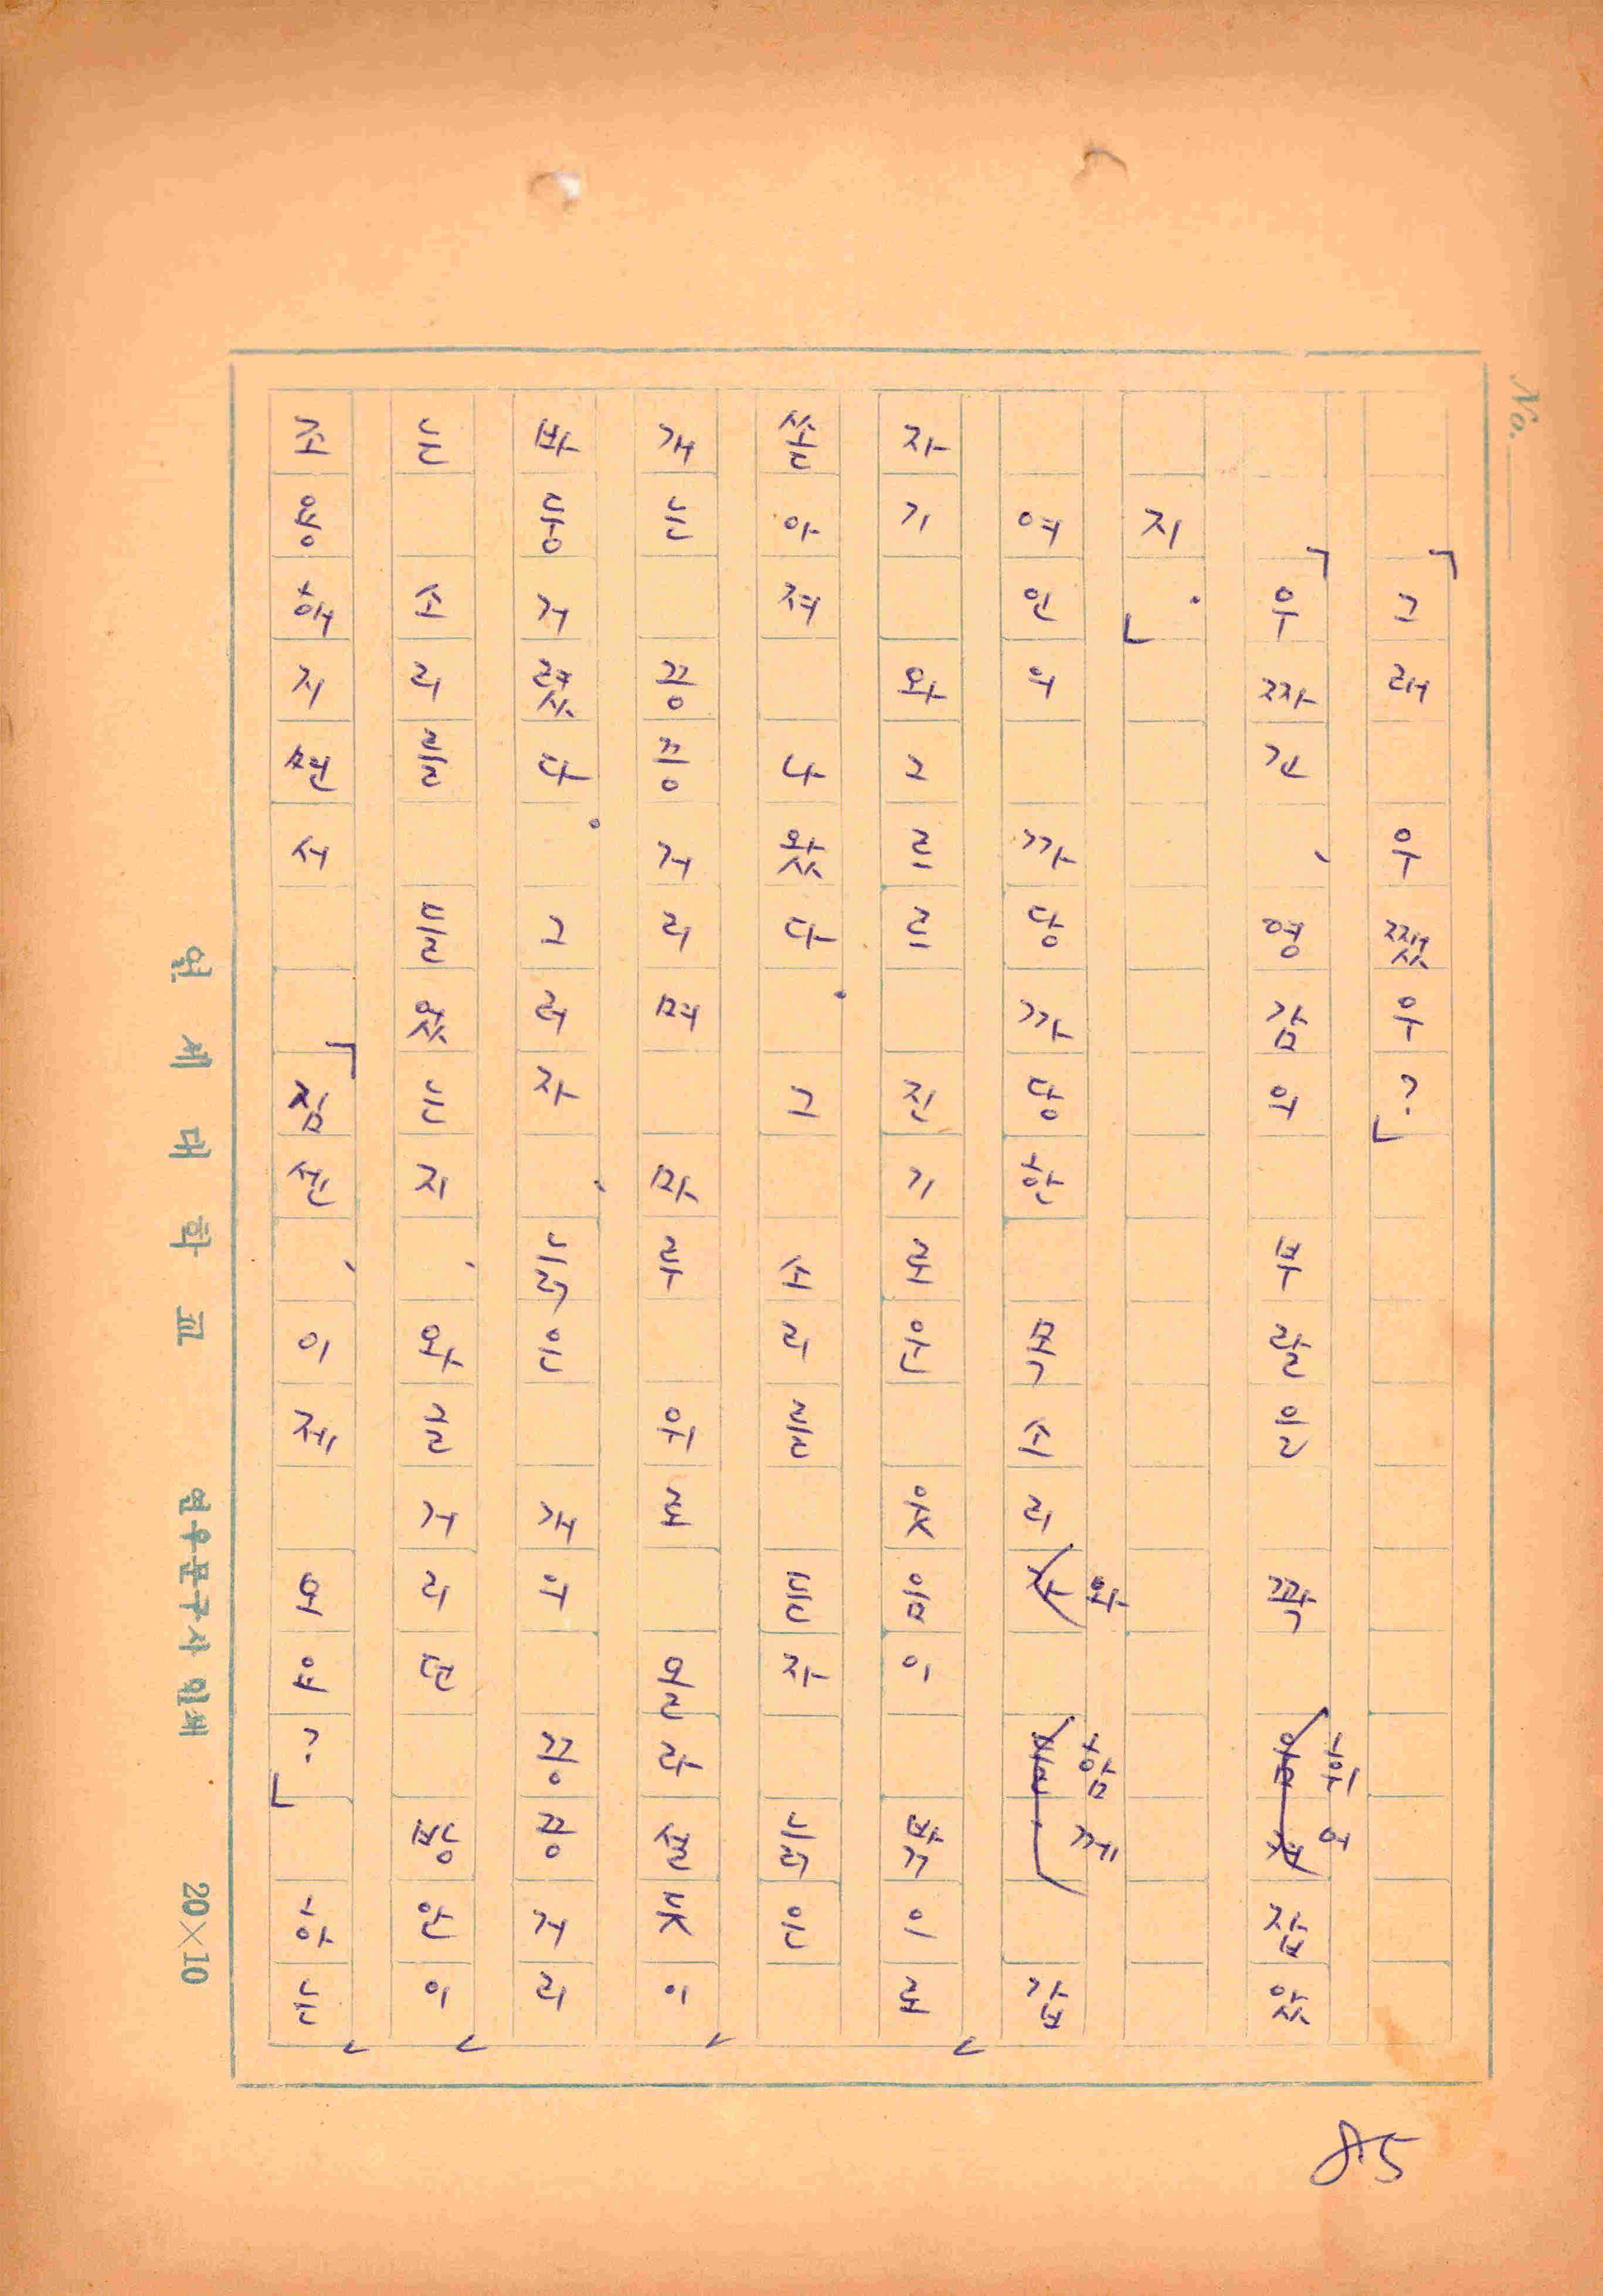 「그래 우쨌우?」
「우짜긴, 영감의 부랄을 꽉 휘어 잡았
지.」
여인의 까당까당한 목소리와 함께 갑
자기 와그르르 진기로운 웃음이 밖으로
쏟아져 나왔다. 그 소리를 듣자 늙은
개는 끙끙거리며 마루 위로 올라설듯이
바둥거렸다. 그러자, 늙은 개의 끙끙거리
는 소리를 들었는지, 와글거리던 방안이
조용해지면서 「짐센, 이제 오야?」 하는
연세대학교
연우문구사 인쇄
20×10
No.
85